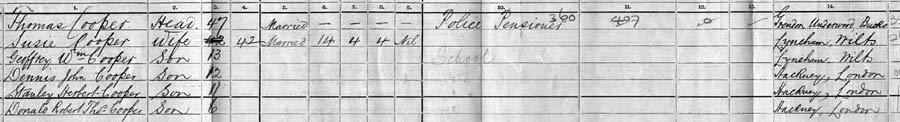 Thomas Cooper Head 47 Married — — — Police Pensioner 390 407 0 Grendon Underwood Bucks
Susie Cooper Wife 42 Married 14 4 4 Nil Lyneham, Wilts
Geoffrey Wm Cooper Son 13 School Lyneham, Wilts
Dennis John Cooper Son 12 Hackney, London
Stanley Herbert Cooper Son 11 Hackney, London
Donald Robert Thos Cooper Son 6 Hackney, London